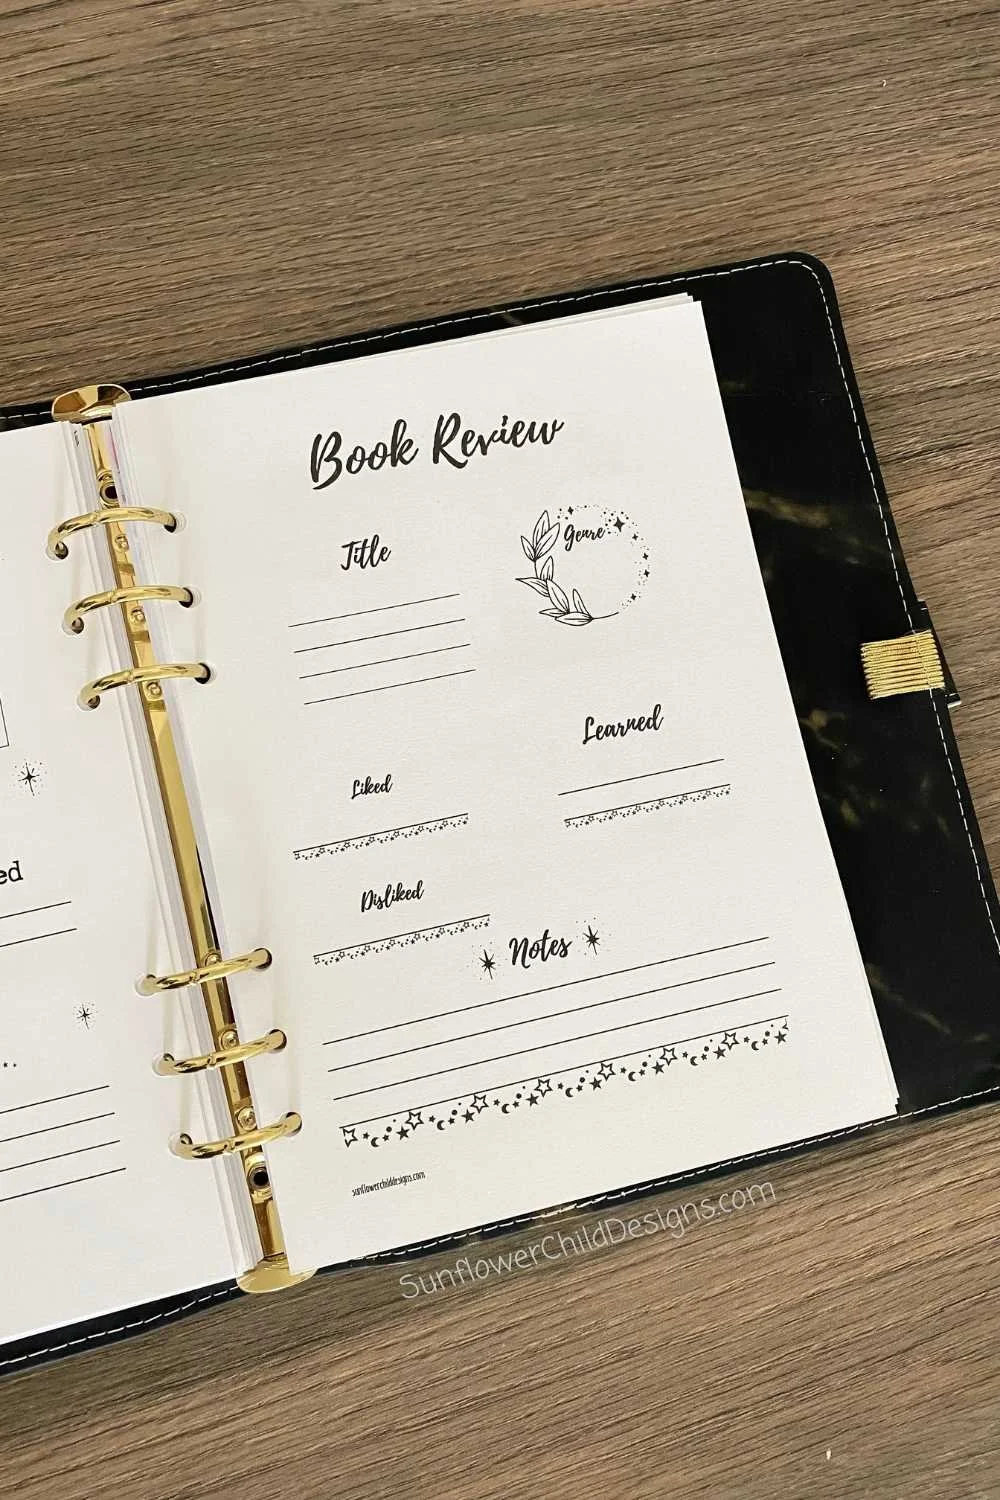 Book Review
Title
Genre
Learned
Liked
Disliked
Notes
sunflowerchilddesigns.com
SunflowerChildDesigns.com
ed